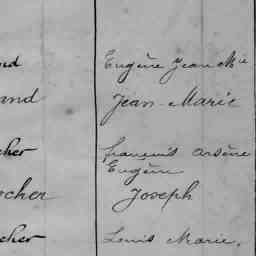 nd Eugène Jean Mie
and Jean Marie
cher François Arsène
Eugène
ocher Joseph
cher Louis Marie.